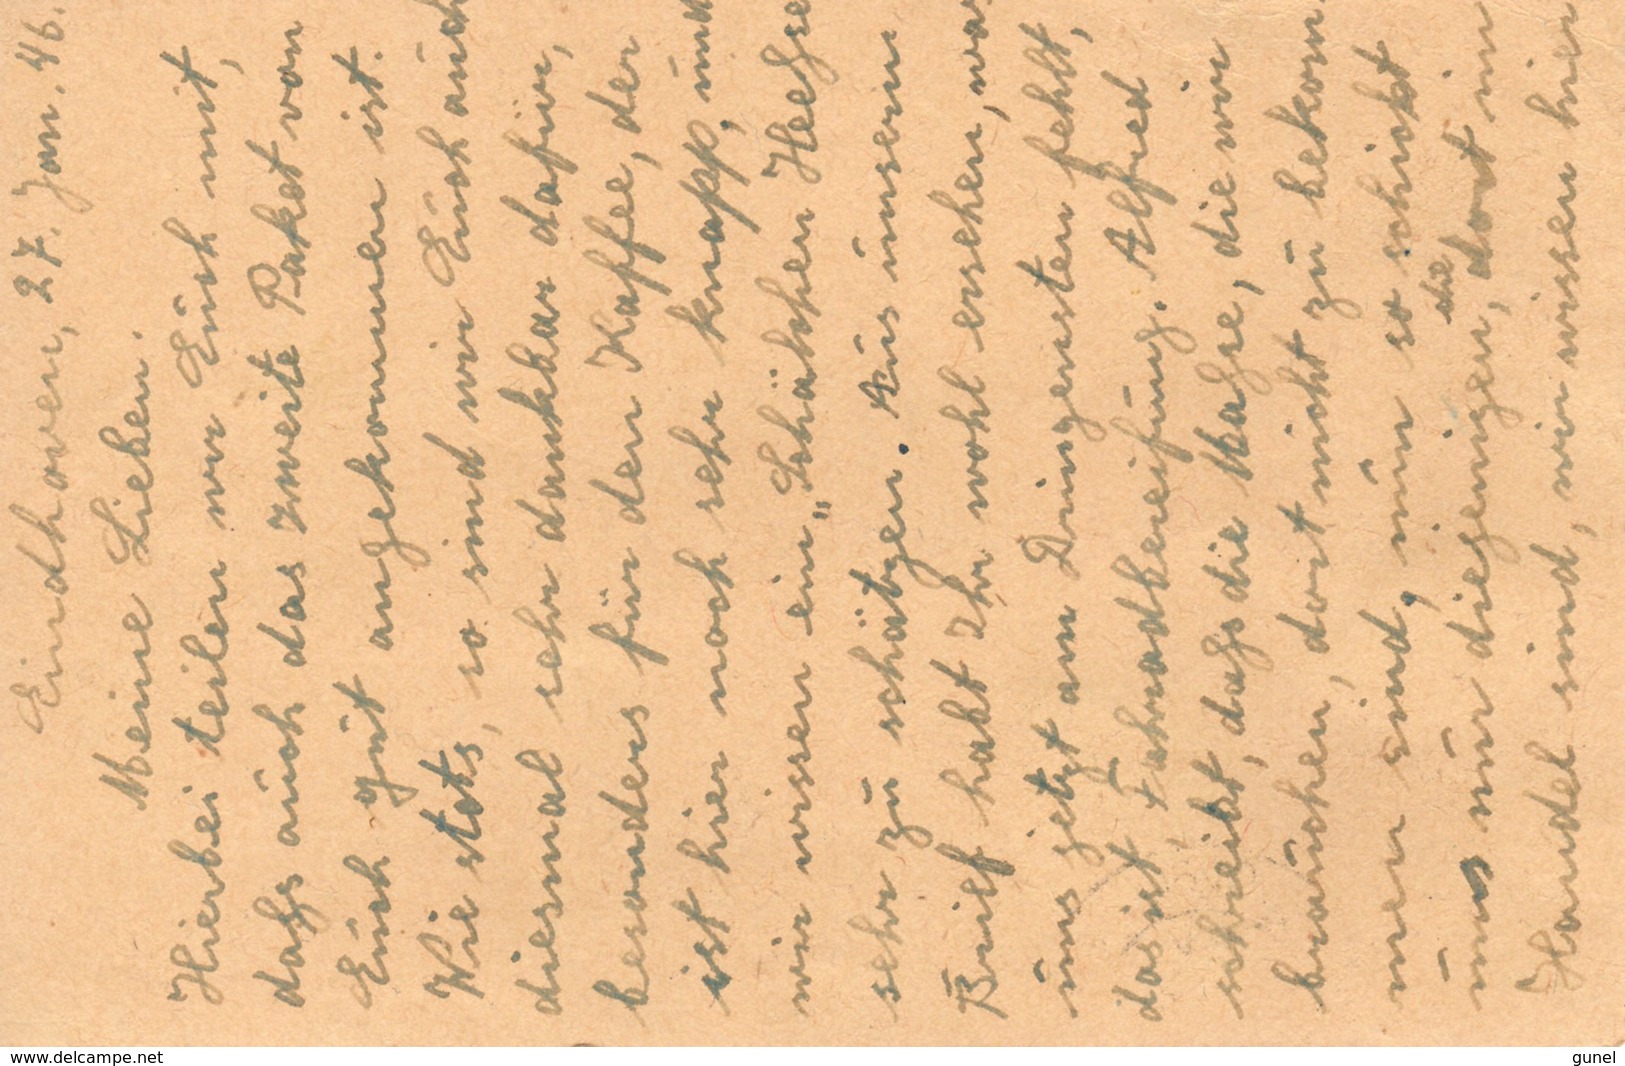 Eindhoven, 27. Jan. 46.
Meine Lieben.
Hierbei teilen wir Euch mit,
dass auch das zweite Paket von
Euch gut angekommen ist.
Wie stets, so sind wir Euch auch
diesmal sehr dankbar dafür,
besonders für den Kaffee, der
ist hier noch sehr knapp, und
wir wissen ein „Schälchen Heesse
sehr zu schätzen. Aus unserm
Brief habt Ihr wohl ersehen, was
uns jetzt am Dringensten fehlt,
das ist Fahrradbereifung. Alfred
schreibt, dass die Masse, die wir
brauchen, dort nicht zu bekom-
men sind, nun so schickt
uns nur diejenigen, die dort im
Handel sind, wir wissen hier
www.delcampe.net
gunel